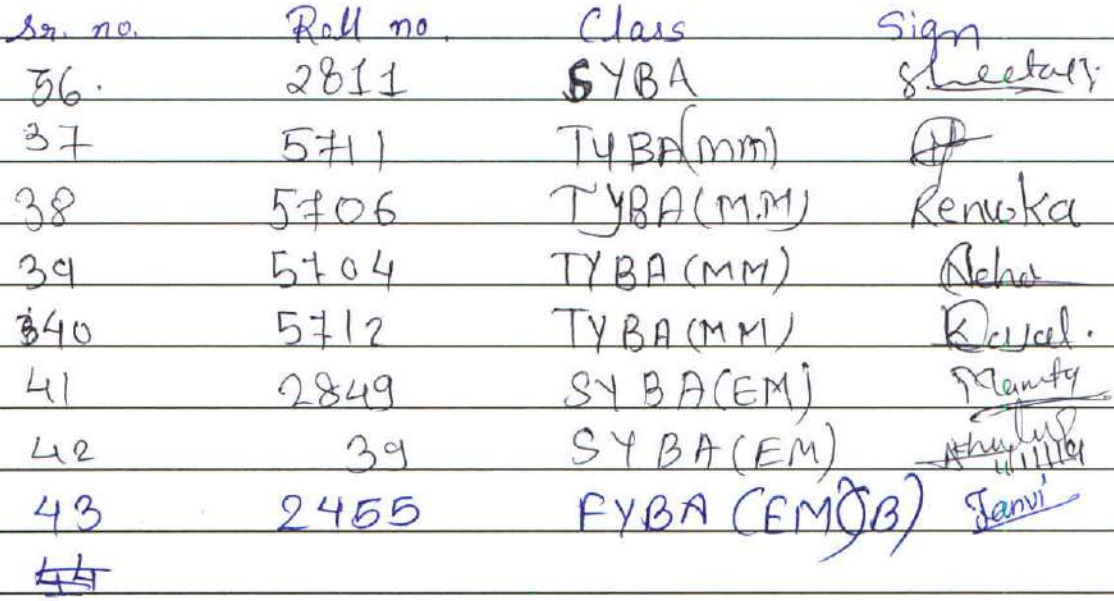 Sr. no. Roll no. Class Sign
36. 2811 SYBA
37 5711 TYBA(MM)
38 5706 TYBA(M.M) Renuka
39 5704 TYBA(MM) Neha
40 5712 TYBA(MM) Kajal.
41 2849 SYBA(EM) Mamta
42 39 SYBA(EM)
43 2455 FYBA (EM)(B) Janvi
44